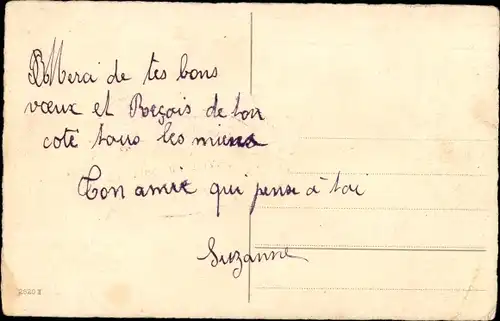 Merci de tes bons
vœux et Reçois de ton
coté tous les miens
Ton amie qui pense à toi
Suzanne